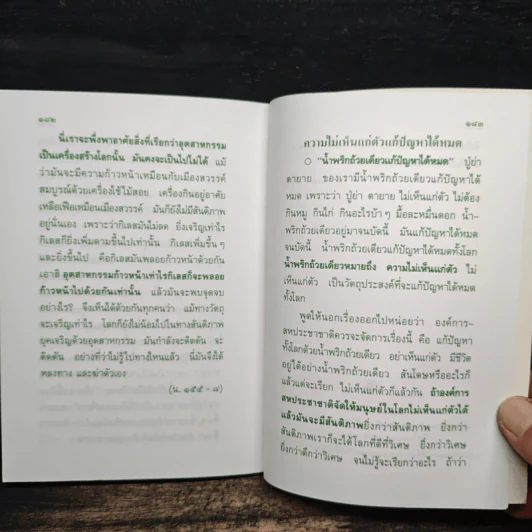 ๑๘๒
นี่เราจะพึ่งพาอาศัยสิ่งที่เรียกว่าอุตสาหกรรม
เป็นเครื่องสร้างโลกนั้น มันคงจะเป็นไปไม่ได้ แม้
ว่ามันจะมีความก้าวหน้าเหมือนกับเมืองสวรรค์
สมบูรณ์ด้วยเครื่องใช้ไม้สอย เครื่องกินอยู่อาศัย
เหลือเฟือเหมือนเมืองสวรรค์ มันก็ยังไม่มีสันติภาพ
อยู่นั่นเอง เพราะว่ากิเลสมันไม่ลด ยิ่งเจริญเท่าไร
กิเลสก็ยิ่งเพิ่มตามขึ้นไปเท่านั้น กิเลสเพิ่มขึ้นๆ
และยิ่งขึ้นไป คือกิเลสมันพลอยก้าวหน้าด้วยกัน
เอาสิ อุตสาหกรรมก้าวหน้าเท่าไรกิเลสก็จะพลอย
ก้าวหน้าไปด้วยกันเท่านั้น แล้วมันจะพบจุดจบ
อย่างไร? จึงเห็นได้ด้วยกันทุกคนว่า แม้ทางวัตถุ
จะเจริญเท่าไร โลกก็ยังไม่น้อมไปในทางสันติภาพ
ยุคเจริญด้วยอุตสาหกรรม มันกำลังจะตีตัน จะ
ตีตัน อย่างที่ว่าไม่รู้ไปทางไหนแล้ว นี่มันจึงได้
หลงทาง และฆ่าตัวเอง
(น. ๑๕๕ - ๘)
๑๘๓
ความไม่เห็นแก่ตัวแก้ปัญหาได้หมด
○ "น้ำพริกถ้วยเดียวแก้ปัญหาได้หมด" ปู่ย่า
ตายาย ของเรามีน้ำพริกถ้วยเดียวแก้ปัญหาได้
หมด เพราะว่า ปู่ย่า ตายาย ไม่เห็นแก่ตัว ไม่ต้อง
กินหมู กินไก่ กินอะไรบ้าๆ มื้อละหมื่นดอก น้ำ-
พริกถ้วยเดียวอยู่มาจนบัดนี้ มันแก้ปัญหาได้หมด
จนบัดนี้ น้ำพริกถ้วยเดียวแก้ปัญหาได้หมดทั้งโลก
น้ำพริกถ้วยเดียวหมายถึง ความไม่เห็นแก่ตัว ไม่
เห็นแก่ตัว เป็นวัตถุประสงค์ที่จะแก้ปัญหาได้หมด
ทั้งโลก
พูดให้นอกเรื่องออกไปหน่อยว่า องค์การ-
สหประชาชาติควรจะจัดการเรื่องนี้ คือ แก้ปัญหา
ทั้งโลกด้วยน้ำพริกถ้วยเดียว อย่าเห็นแก่ตัว มีชีวิต
อยู่ได้อย่างน้ำพริกถ้วยเดียว สันโดษหรืออะไรก็
แล้วแต่จะเรียก ไม่เห็นแก่ตัวก็แล้วกัน ถ้าองค์การ
สหประชาชาติจัดให้มนุษย์ในโลกไม่เห็นแก่ตัวได้
แล้วมันจะมีสันติภาพยิ่งกว่าสันติภาพ ยิ่งกว่า
สันติภาพเราก็จะได้โลกที่ดีที่วิเศษ ยิ่งกว่าวิเศษ
ยิ่งกว่าดีกว่าวิเศษ จนไม่รู้จะเรียกว่าอะไร ถ้าว่า